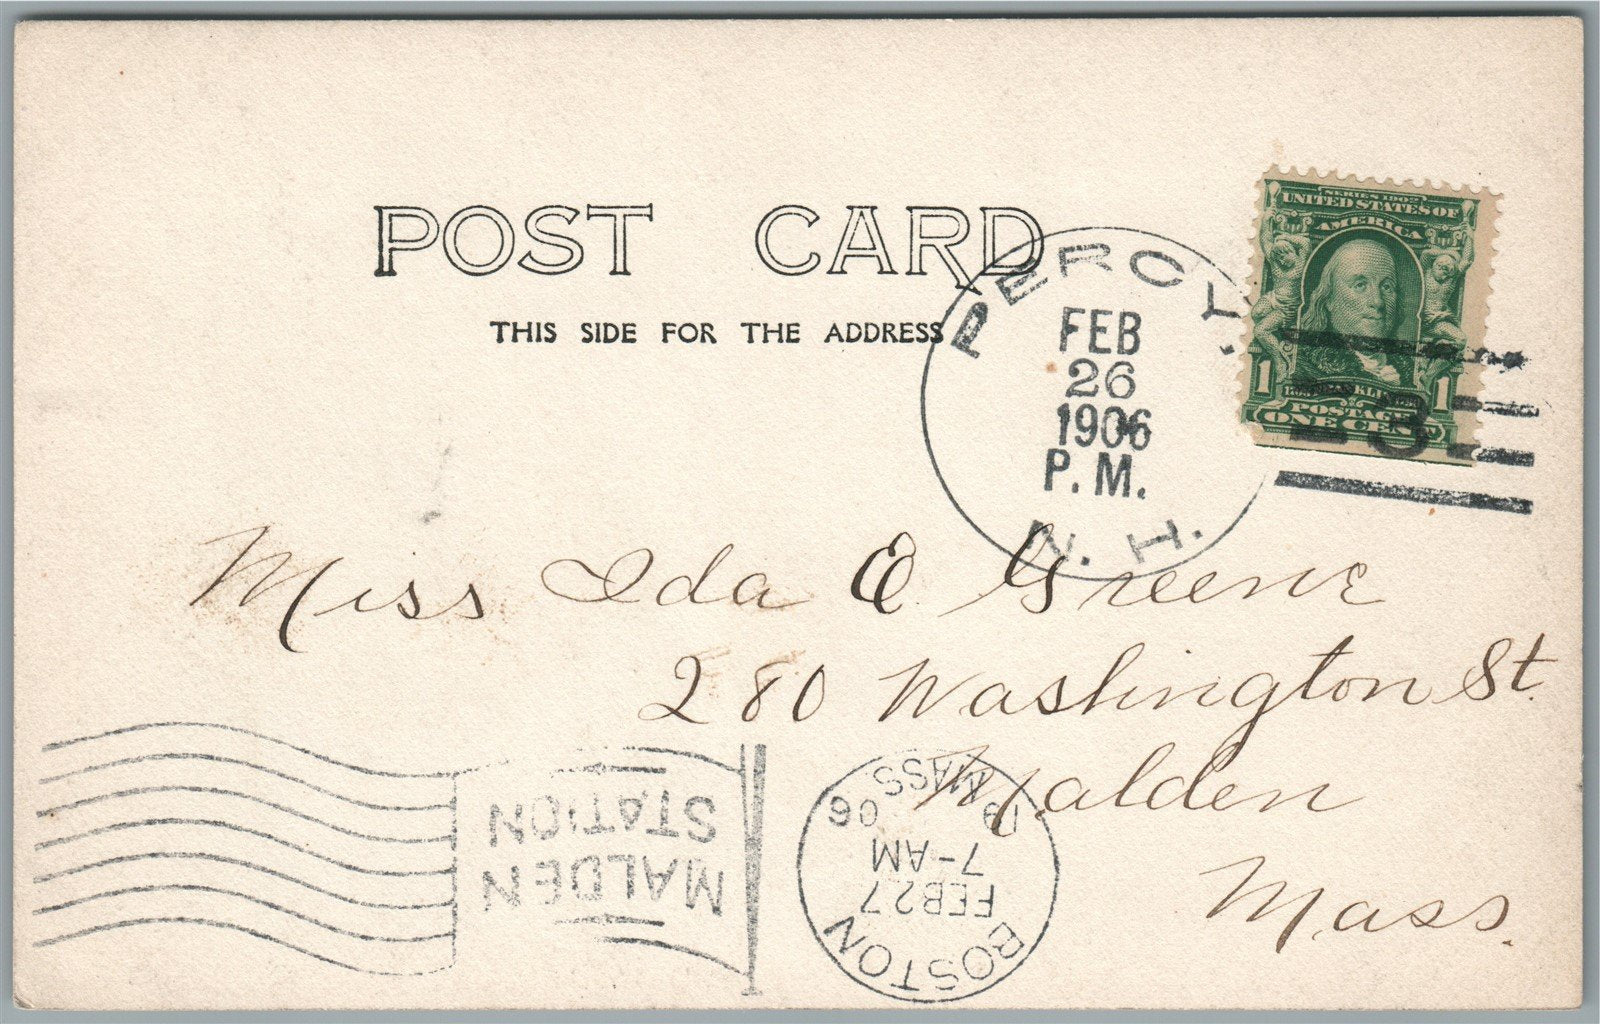 POST CARD
THIS SIDE FOR THE ADDRESS
PERCY.
FEB
26
1906
P.M.
N. H.
SERIES 1902
UNITED STATES OF
AMERICA
1 1
POSTAGE
ONE CENT
3
Miss Ida E Greene
280 Washington St.
Malden
Mass.
MALDEN
STATION
BOSTON
FEB 27
7-AM
19 06
MASS.